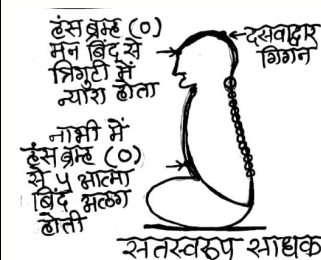 हंसब्रम्ह (0)
मन बिंद से
त्रिगुटी में
न्यारा होता
दसवाद्वार
गिगन
नाभी में
हंसब्रम्ह (0)
से ५ आत्मा
बिंद अलग
होती
सतस्वरूप साधक